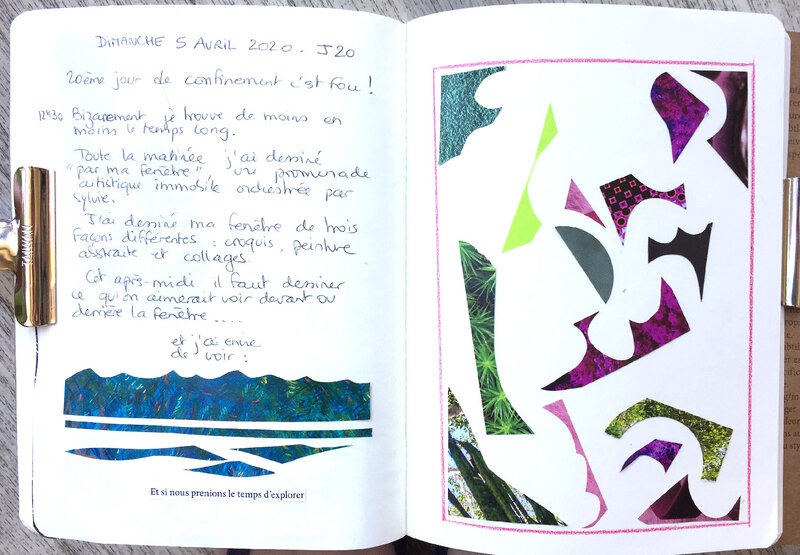 DIMANCHE 5 AVRIL 2020. J20
20ème jour de confinement c'est fou !
12H30 Bizarrement je trouve de moins en
moins le temps long.
Toute la matinée j'ai dessiné
"par ma fenêtre", une promenade
artistique immobile orchestrée par
Sylvie.
J'ai dessiné ma fenêtre de trois
façons différentes : croquis, peinture
abstraite et collages
Cet après-midi il faut dessiner
ce qu'on aimerait voir devant ou
derrière la fenêtre .....
et j'ai envie
de voir :
Et si nous prenions le temps d'explorer